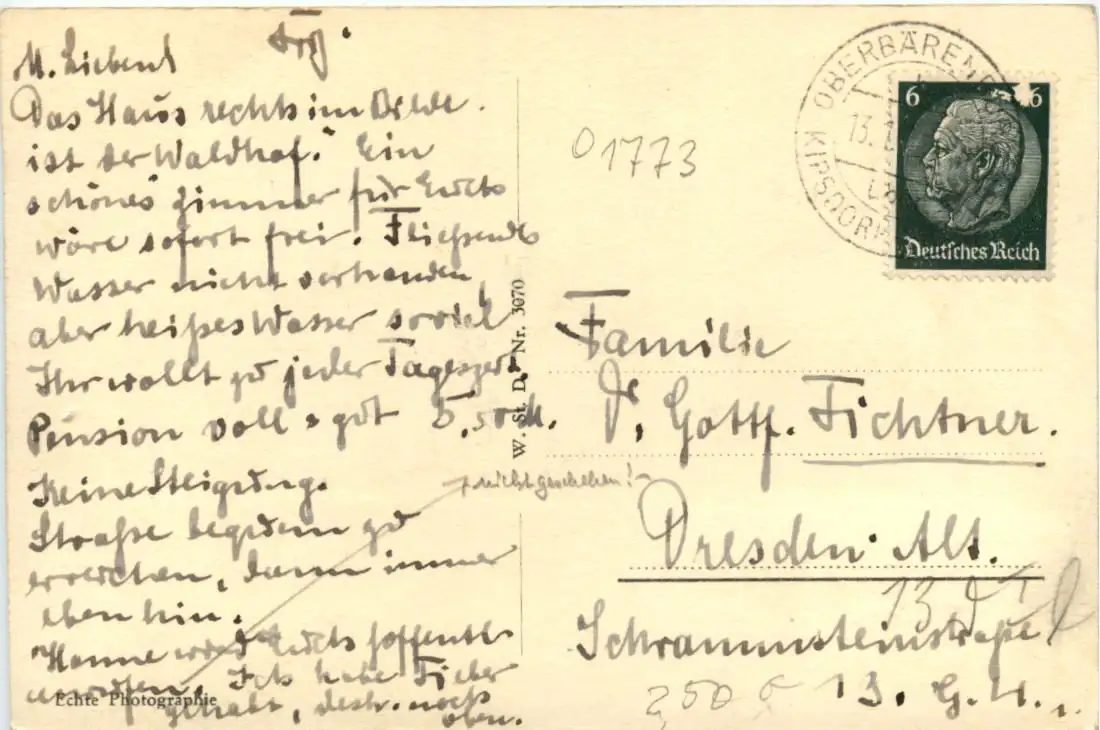 M. Lieben!
Das Haus rechts im Bilde.
ist der Waldhof. Ein
schönes Zimmer für Euch
wäre sofort frei. Fließends
Wasser nicht vorhanden
aber heißes Wasser soviel
Ihr wollt zu jeder Tageszeit
Pension voll & gut 5,50 M.
Keine Steigung.
Straße bequem zu
erreichen, dann immer
eben hin.
Hanne wird Euch hoffentl.
Ich habe Fieber
gehabt, deshr. noch
oben.
nicht geschehen!
Echte Photographie
W. St. D. Nr. 3070
01773
OBERBÄREN
13.
KIPSDORF
6 6
Deutsches Reich
Familie
Dr. Gottf. Fichtner.
Dresden Alt.
13
Schrammsteinstraße
250 13. G.H.